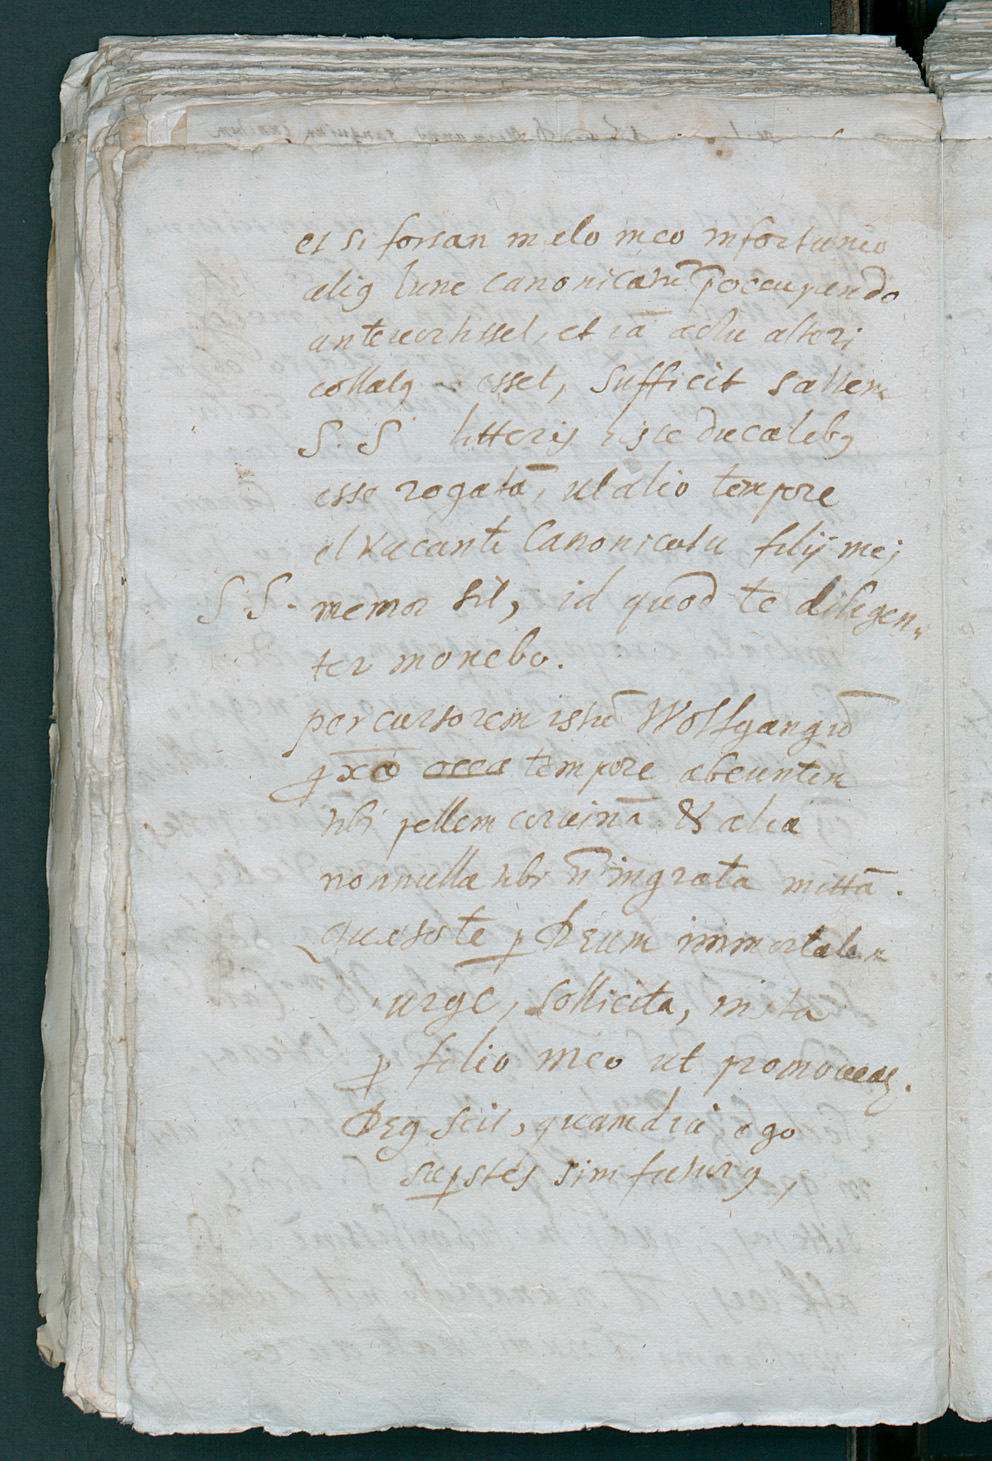 et si forsan in elo meo infortunio
aliq hunc canonicatū p̄occupando
antevertisset, et iā actu alteri
collatq esset, sufficit saltem
S. S. litteris istis ducalibq
esse rogatā, ut alio tempore
et vacante Canonicatu filij mej
S S. memor sit, id quod te diligen„
ter monebo.
per cursorem istū Wolfgangū
tempore abeuntem
tibi pellem corvinā & alia
nonnulla tibi n̄ ingrata mittā.
quæso te p Deum immortalem
urge, sollicita, insta
p filio meo ut promoveaꝶ.
Deq scit, quamdiu ego
supstes sim futurq,